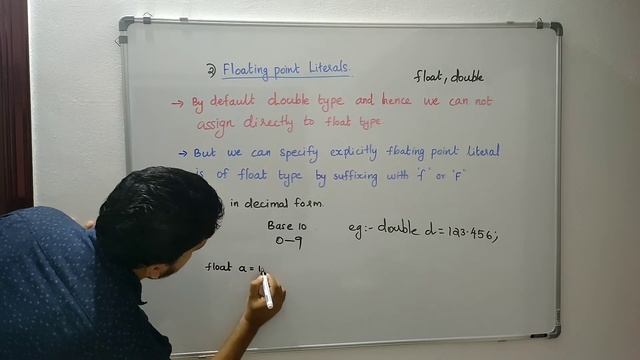 2) Floating point Literals
float, double
→ By default double type and hence we can not
assign directly to float type
→ But we can specify explicitly floating point literal
is of float type by suffixing with 'f' or 'F'
in decimal form.
Base 10
0-9
eg:- double d = 123.456;
float a = 1